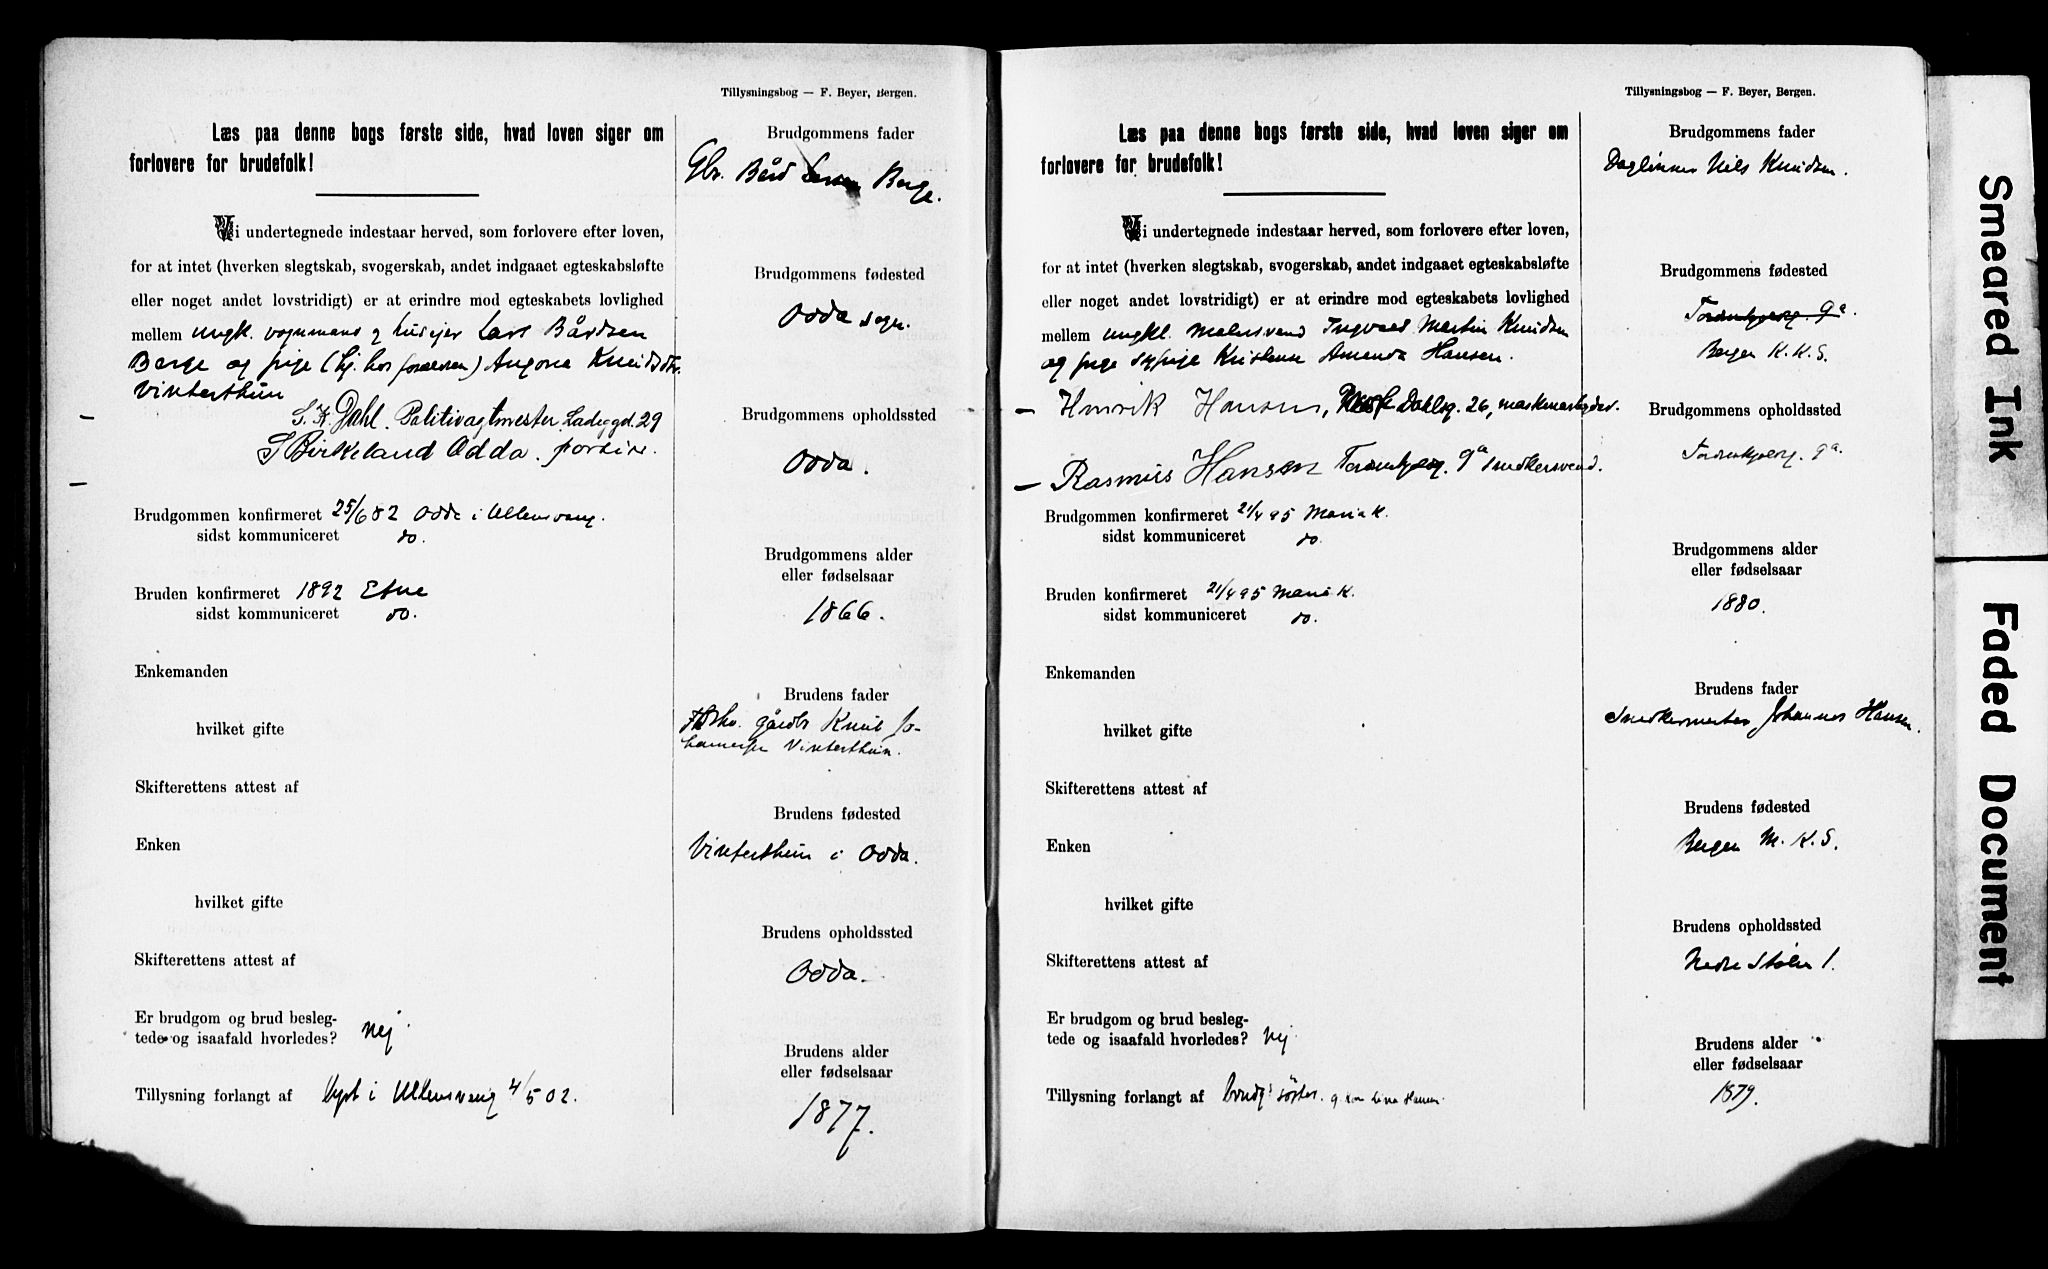 Tillysningsbog — F. Beyer, Bergen.
Læs paa denne bogs første side, hvad loven siger om
forlovere for brudefolk!
Vi undertegnede indestaar herved, som forlovere efter loven,
for at intet (hverken slegtskab, svogerskab, andet indgaaet egteskabsløfte
eller noget andet lovstridigt) er at erindre mod egteskabets lovlighed
mellem ungk. vognmand g husejer Lars Bårdsen
Berge og pige (hj. hos forældren) Angona Knudsdtr.
Vinterthun
S. K. Dahl. Politivagtmester. Ladeggd. 29
S Birkeland Odda. portier.
Brudgommen konfirmeret 25/6 82 Odda i Ullensvang.
sidst kommuniceret do.
Bruden konfirmeret 1892 Etne
sidst kommuniceret do.
Enkemanden
hvilket gifte
Skifterettens attest af
Enken
hvilket gifte
Skifterettens attest af
Er brudgom og brud besleg-
tede og isaafald hvorledes? nej.
Tillysning forlangt af lyst i Ullensvang 4/5 02.
Brudgommens fader
Gbr. Bård Larsen Berge.
Brudgommens fødested
Odda sogn.
Brudgommens opholdssted
Odda.
Brudgommens alder
eller fødselsaar
1866.
Brudens fader
gårdbr Knud Jo-
Vinterthun.
Brudens fødested
Vinterthun i Odda.
Brudens opholdssted
Odda.
Brudens alder
eller fødselsaar
1877.
Tillysningsbog — F. Beyer, Bergen.
Læs paa denne bogs første side, hvad loven siger om
forlovere for brudefolk!
Vi undertegnede indestaar herved, som forlovere efter loven,
for at intet (hverken slegtskab, svogerskab, andet indgaaet egteskabsløfte
eller noget andet lovstridigt) er at erindre mod egteskabets lovlighed
mellem ungkl. malersvend Ingvald Martin Knudsen
og pige sypige Kristense Amanda Hansen.
Henrik Hansen, Dahlsg. 26, maskinarbejder.
Rasmus Hansen Tordenskjoldsg. 9a snedkersvend.
Brudgommen konfirmeret 21/4 95 Maria K.
sidst kommuniceret do.
Bruden konfirmeret 21/4 95 Maria K.
sidst kommuniceret do.
Enkemanden
hvilket gifte
Skifterettens attest af
Enken
hvilket gifte
Skifterettens attest af
Er brudgom og brud besleg-
tede og isaafald hvorledes? nej.
Tillysning forlangt af brudg's søster. g. Hansen.
Brudgommens fader
Daglønner Nils Knudsen.
Brudgommens fødested
9a.
Bergen K. K. S.
Brudgommens opholdssted
9a.
Brudgommens alder
eller fødselsaar
1880.
Brudens fader
Snedkermester Johannes Hansen.
Brudens fødested
Bergen M. K. S.
Brudens opholdssted
Nedre Stølen 1.
Brudens alder
eller fødselsaar
1879.
Smeared Ink
Faded Document